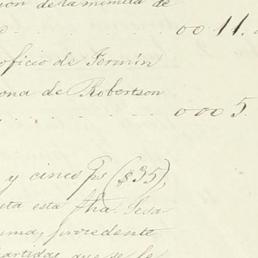 cion de la minuta de
00 11.
oficio de Fermin
ona de Robertson
000 5
y cinco ps ($35),
ta esta fha. Lesa
uma, procedente
partidas que se le